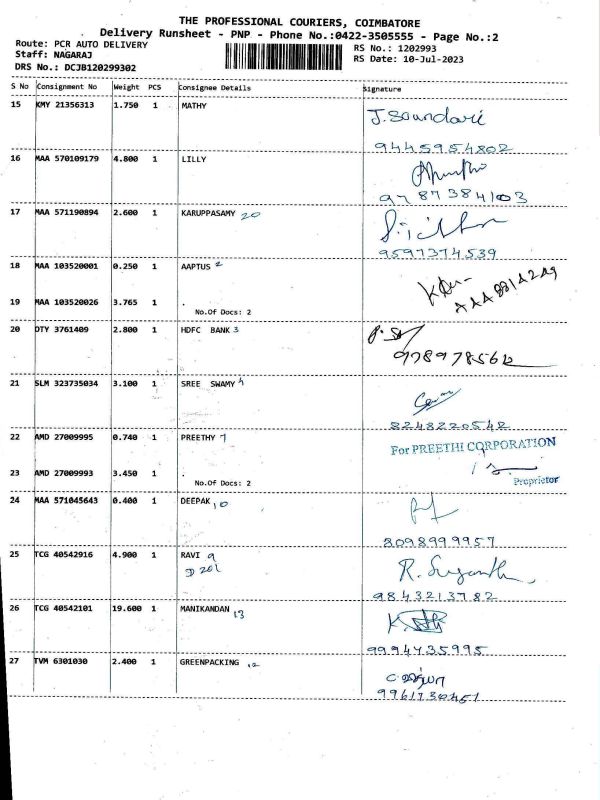 THE PROFESSIONAL COURIERS, COIMBATORE
Delivery Runsheet - PNP - Phone No.:0422-3505555 - Page No.:2
Route: PCR AUTO DELIVERY
RS No.: 1202993
Staff: NAGARAJ
RS Date: 10-Jul-2023
DRS No.: DCJB120299302
S No Consignment No Weight PCS Consignee Details Signature
15 KMY 21356313 1.750 1 MATHY J. Soundari
9445954802
16 MAA 570109179 4.800 1 LILLY
9787384103
17 MAA 571190894 2.600 1 KARUPPASAMY 20
9597374539
18 MAA 103520001 0.250 1 AAPTUS 2
19 MAA 103520026 3.765 1
No.Of Docs: 2
20 DTY 3761409 2.800 1 HDFC BANK 3
21 SLM 323735034 3.100 1 SREE SWAMY 4
8248220542
22 AMD 27009995 0.740 1 PREETHY 7 For PREETHI CORPORATION
23 AMD 27009993 3.450 1
No.Of Docs: 2
Proprietor
24 MAA 571045643 0.400 1 DEEPAK 10
8098999957
25 TCG 40542916 4.900 1 RAVI 9
9843213782
26 TCG 40542101 19.600 1 MANIKANDAN 13
9994735995
27 TVM 6301030 2.400 1 GREENPACKING 12
9961730451